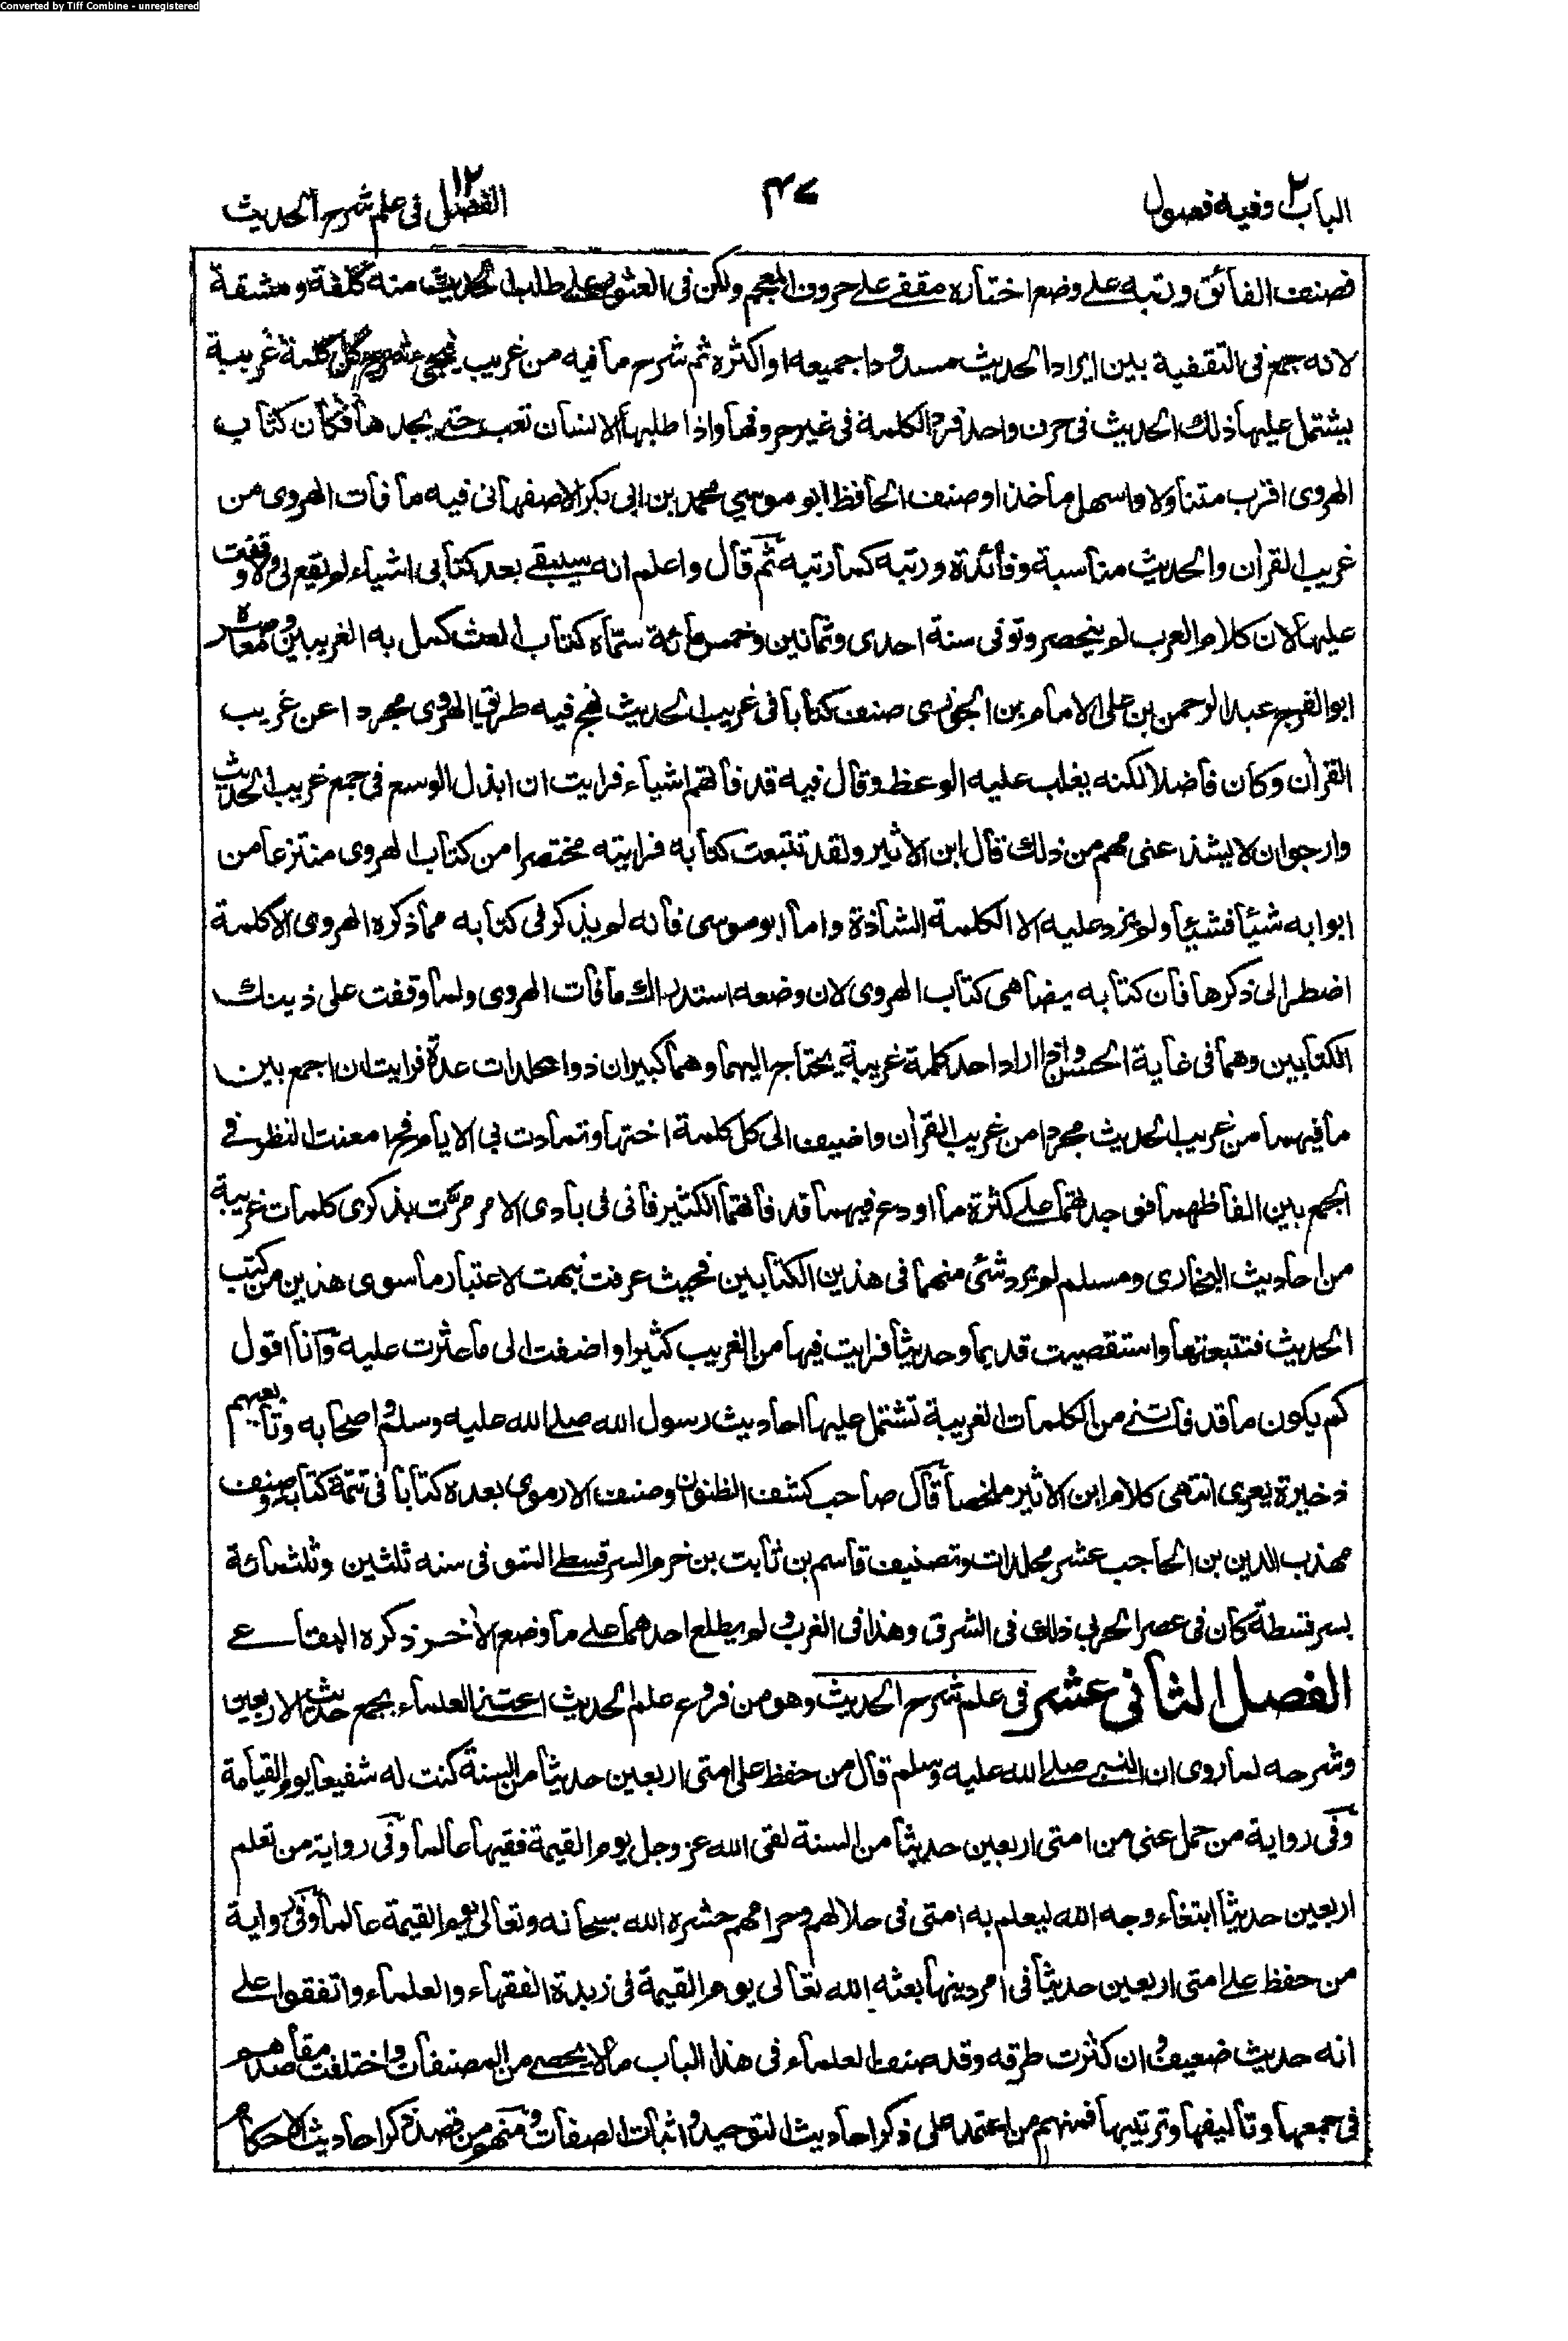 Converted by Tiff Combine - unregistered
الباب ٢ وفيه فصول
٤٧
الفصل ١٢ فى علم شرح الحديث
فصنف الفائق ورتبه على وضع اختاره مقفى على حروف المعجم ولكن فى العثور على طلب الحديث منه كلفة ومشقة
لانه جمع فى التقفية بين ايراد الحديث مسرودا جميعه او اكثره ثم شرح ما فيه من غريب فيجئ شرح كل كلمة غريبة
يشتمل عليها ذلك الحديث فى حرف واحد فترد الكلمة فى غير حروفها واذا طلبها الانسان تعب حتى يجدها فكان كتاب
الهروى اقرب متناولا واسهل ماخذا وصنف الحافظ ابو موسى محمد بن ابى بكر الاصفهانى فيه ما فات الهروى من
غريب القران والحديث مناسبة وفائدة ورتبه كما رتبه ثم قال واعلم انه سيبقى بعد كتابى اشياء لم تقع لى ولا وقفت
عليها لان كلام العرب لم ينحصر وتوفى سنة احدى وثمانين وخمس مائة سماه كتاب المغيث كمل به الغريبين ومعاصره
ابو الفرج عبد الرحمن بن على الامام بن الجوزى صنف كتابا فى غريب الحديث نهج فيه طريق الهروى مجردا عن غريب
القران وكان فاضلا لكنه يغلب عليه الوعظ وقال فيه قد فاتهم اشياء فرايت ان ابذل الوسع فى جمع غريب الحديث
وارجو ان لا يشذ عنى مهم من ذلك قال ابن الاثير ولقد تتبعت كتابه فرايته مختصرا من كتاب الهروى منتزعا من
ابوابه شيئا فشيئا ولم يزد عليه الا الكلمة الشاذة واما ابو موسى فانه لم يذكر فى كتابه مما ذكره الهروى الا كلمة
اضطر الى ذكرها فان كتابه يضاهى كتاب الهروى لان وضعه استدراك ما فات الهروى ولما وقفت على ذينك
الكتابين وهما فى غاية الحسن واذا اراد احد كلمة غريبة يحتاج اليهما وهما كبيران ذوا مجلدات عدة فرايت ان اجمع بين
ما فيهما من غريب الحديث مجردا من غريب القران واضيف الى كل كلمة اختها وتمادت بى الايام فح امعنت النظر فى
الجمع بين الفاظهما فوجدتهما على كثرة ما اودع فيهما قد فاتهما الكثير فانى فى بادى الامر مرت بذكرى كلمات غريبة
من احاديث البخارى ومسلم لم يرد شئ منهما فى هذين الكتابين فحيث عرفت نبهت لاعتبار ما سوى هذين من كتب
الحديث فتتبعتها واستقصيت قديما وحديثا فرايت فيها من الغريب كثيرا واضفت الى ما عثرت عليه وانا اقول
كم يكون ما قد فاتنى من الكلمات الغريبة تشتمل عليها احاديث رسول الله صلى الله عليه وسلم واصحابه وتابعيهم
ذخيرة لغيرى انتهى كلام ابن الاثير ملخصا قال صاحب كشف الظنون وصنف الارموى بعده كتابا فى تتمة كتابه وصنف
مهذب الدين بن الحاجب عشر مجلدات وتصنيف قاسم بن ثابت بن حزم السرقسطى المتوفى سنه ثلثين وثلثمائة
بسرقسطة كان فى عصر الحربى ذلك فى الشرق وهذا فى الغرب ولم يطلع احدهما على ما وضع الاخر ذكره البقاعى
الفصل الثانى عشر فى علم شرح الحديث وهو من فروع علم الحديث اعتنى العلماء بجمع حديث الاربعين
وشرحه لما روى ان النبى صلى الله عليه وسلم قال من حفظ على امتى اربعين حديثا من السنة كنت له شفيعا يوم القيامة
وفى رواية من حمل عنى من امتى اربعين حديثا من السنة لقى الله عز وجل يوم القيمة فقيها عالما وفى رواية من تعلم
اربعين حديثا ابتغاء وجه الله ليعلم به امتى فى حلالهم وحرامهم حشره الله سبحانه وتعالى يوم القيمة عالما وفى رواية
من حفظ على امتى اربعين حديثا فى امر دينها بعثه الله تعالى يوم القيمة فى زبدة الفقهاء والعلماء واتفقوا على
انه حديث ضعيف وان كثرت طرقه وقد صنف العلماء فى هذا الباب ما لا يحصى من المصنفات واختلفت مقاصدهم
فى جمعها وتاليفها وترتيبها فمنهم من اعتمد على ذكر احاديث التوحيد واثبات الصفات ومنهم من قصد ذكر احاديث الاحكام